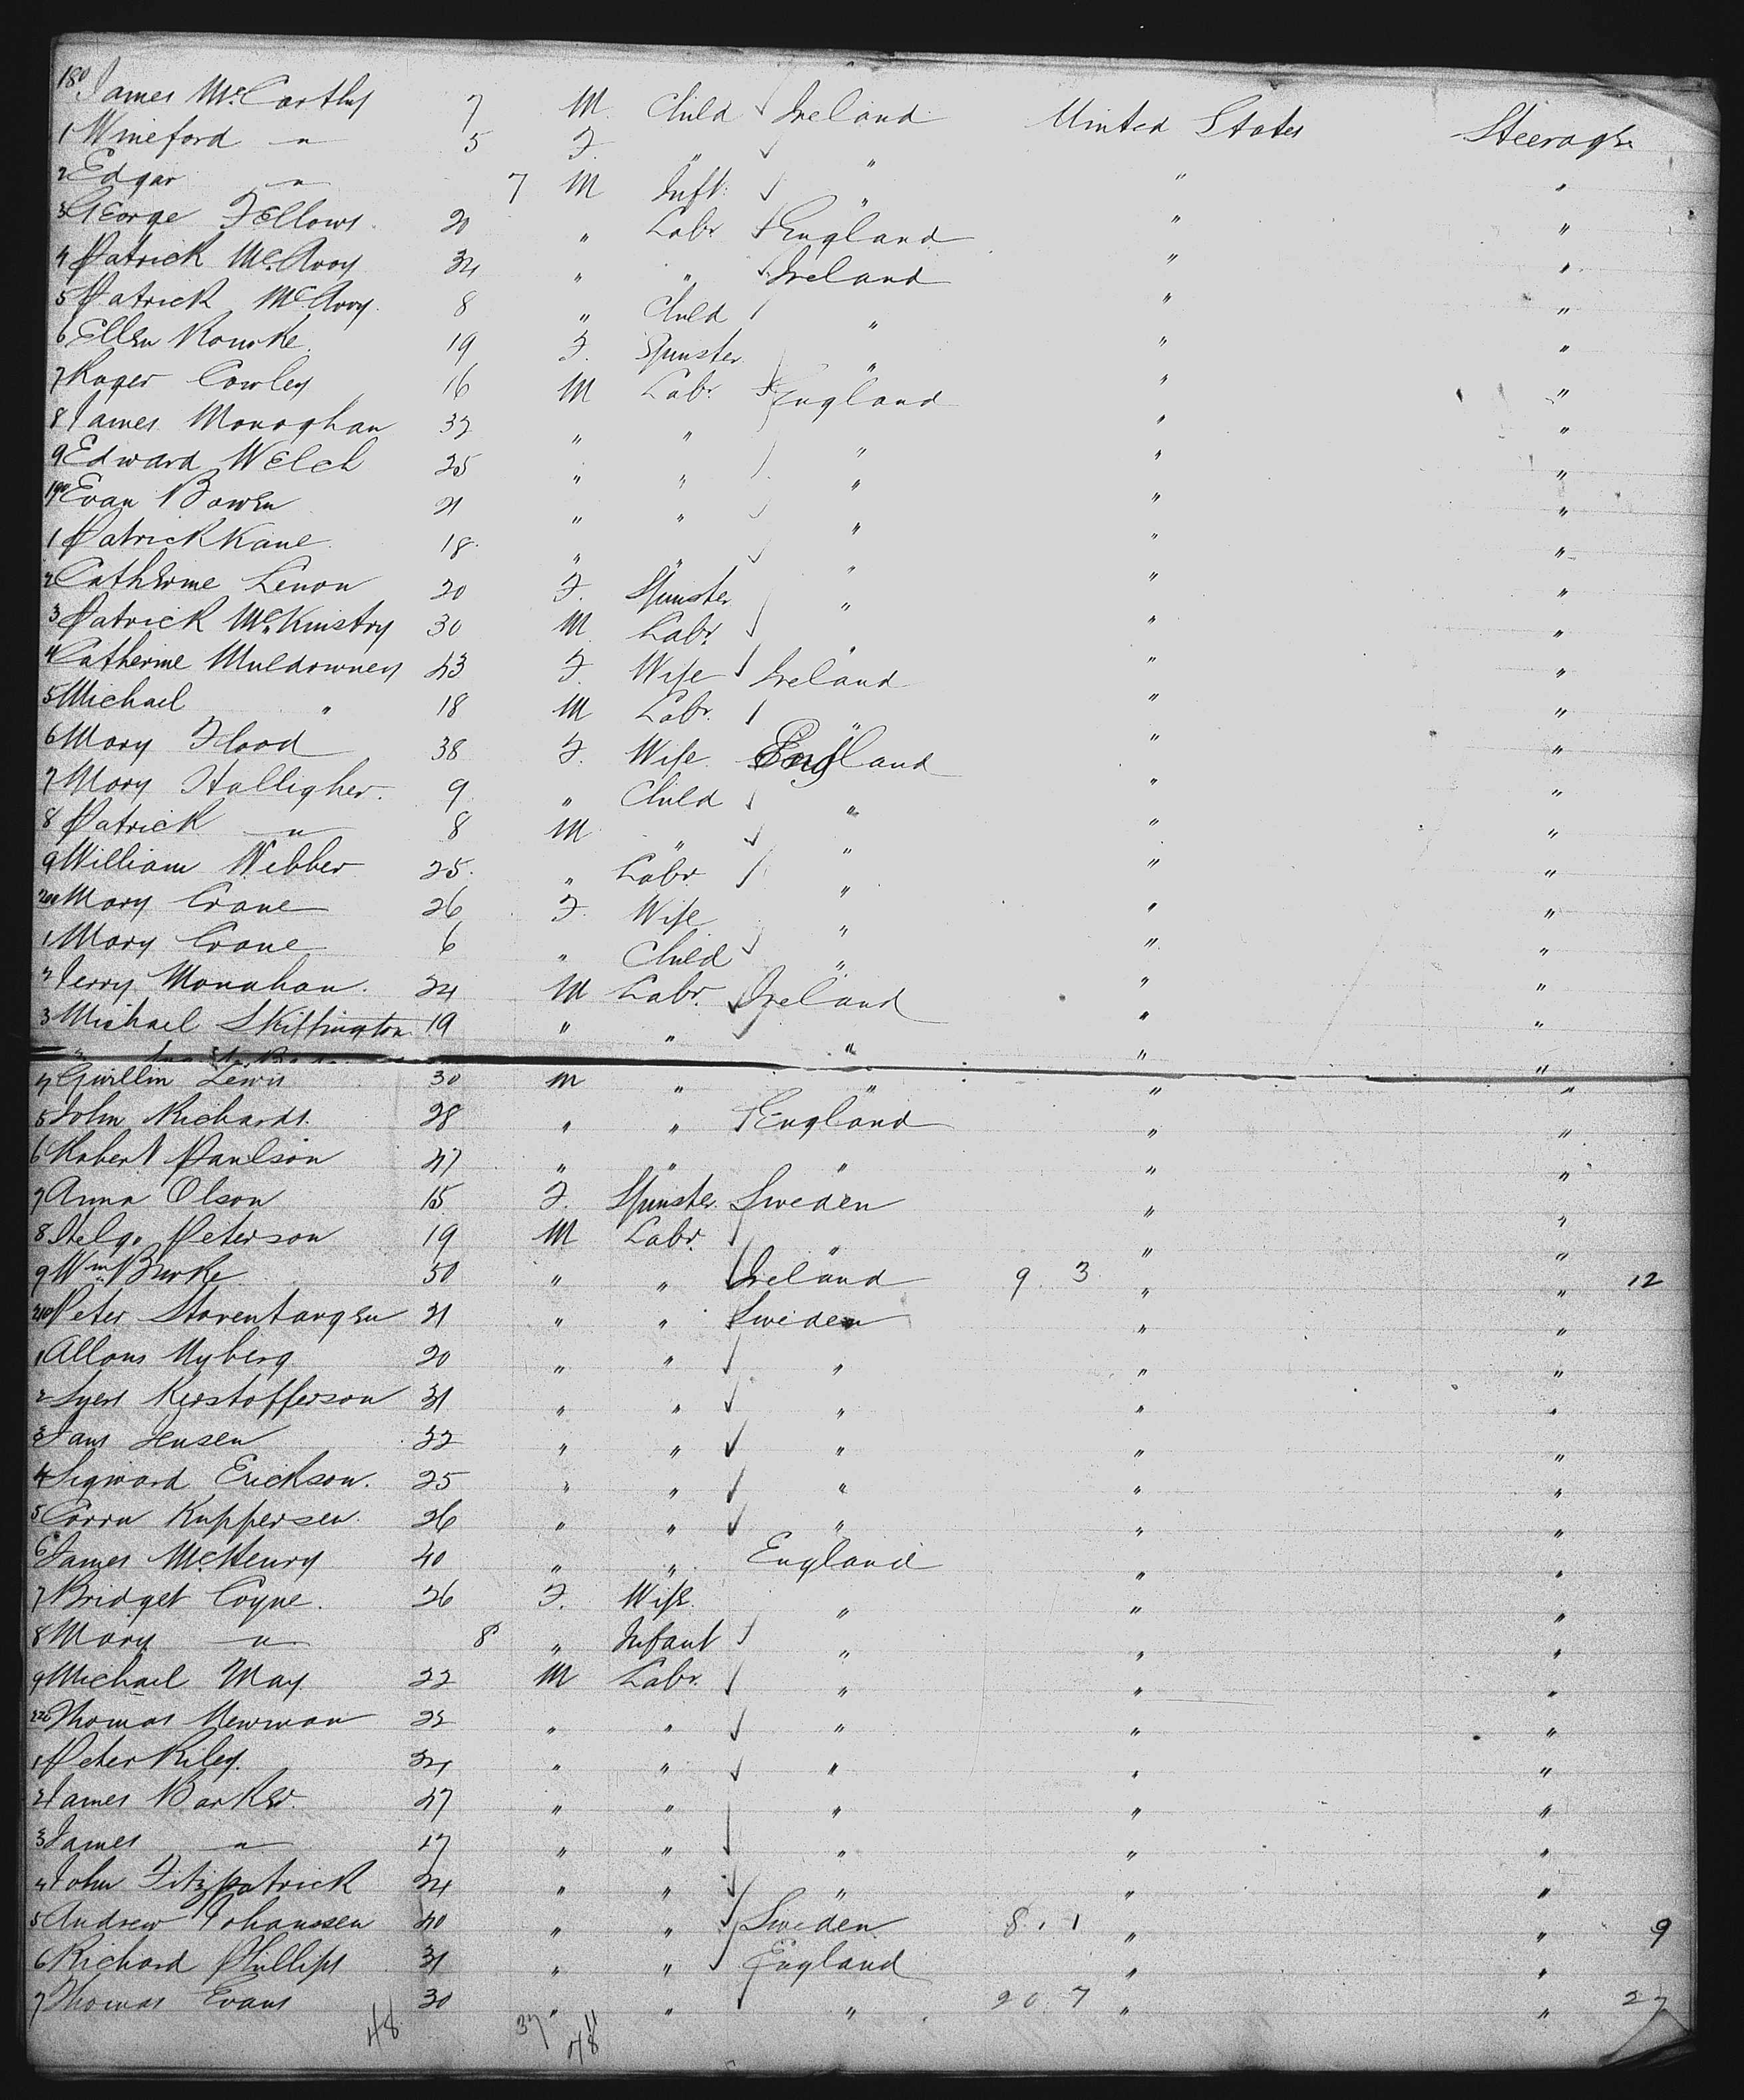 180 James McCarthy 7 M. Child Ireland United States Steerage
1 Wineford " 5 F. " " " "
2 Edgar " 7 M Inft. " " "
3 George Fellows 20 " Labr England " "
4 Patrick McAvoy 34 " " Ireland " "
5 Patrick McAvoy. 8 " Child " " "
6 Ellen Rourke. 19 F. Spinster " " "
7 Roger Cowley 16 M Labr. England " "
8 James Monoghan 32 " " " " "
9 Edward Welch 25 " " " " "
190 Evan Bowen 21 " " " " "
1 Patrick Kane 18 " " " " "
2 Catherine Lenon 20 F. Spinster " " "
3 Patrick McKinstry 30 M. Labr. " " "
4 Catherine Muldowney 43 F. Wife Ireland " "
5 Michael " 18 M Labr. " " "
6 Mary Flood 38 F. Wife England " "
7 Mary Halligher. 9 " Child " " "
8 Patrick " 8 M " " " "
9 William Webber 25 " Labr " " "
200 Mary Crane 26 F. Wife " " "
1 Mary Crane 6 " Child " " "
2 Jerry Monahan. 24 M Labr. Ireland " "
3 Michael Skiffington 19 " " " " "
4 Gwillin Lewis 30 M " " " "
5 John Richards. 28 " " England " "
6 Robert Paulson 47 " " " " "
7 Anna Olson 15 F. Spinster Sweden " "
8 Helga Peterson 19 M Labr. " " "
9 Wm Burke 50 " " Ireland 9 . 3 " " 12
210 Peter 21 " " Sweden " "
1 Nyberg 20 " " " " "
2 Kerstofferson 31 " " " " "
3 Jans Jensen 32 " " " " "
4 Sigward Erickson. 25 " " " " "
5 Kuppersen 26 " " " " "
6 James McHenry 40 " " England " "
7 Bridget Coyne. 26 F. Wife " " "
8 Mary " 8 " Infant " " "
9 Michael May 22 M Labr. " " "
220 Thomas Newman 22 " " " " "
1 Peter Riley. 34 " " " " "
2 James Barker. 47 " " " " "
3 James " 17 " " " " "
4 John Fitzpatrick 24 " " " " "
5 Andrew Johanssen 40 " " Sweden 8 . 1 " " 9
6 Richard Phillips 31 " " England " "
7 Thomas Evans 30 " " " 20 . 7 " " 27
48 37 11
48